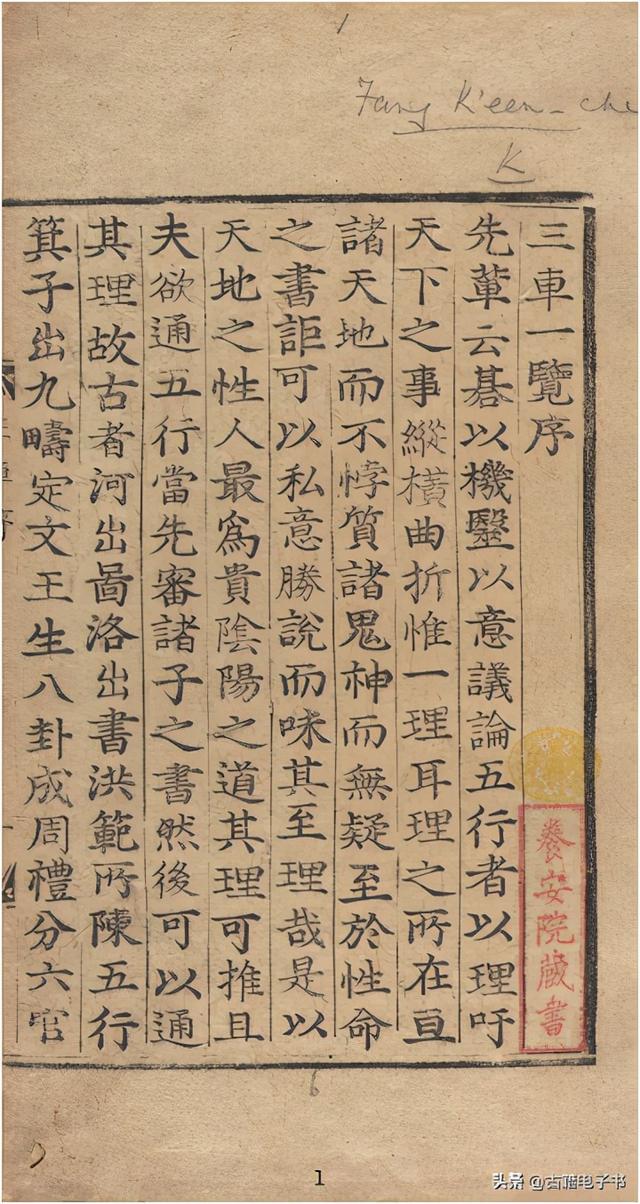 1
Fang K'een-che
K
三車一覽序
養安院藏書
先軰云碁以機毉以意議論五行者以理吁
天下之事縱橫曲折惟一理耳理之所在亘
諸天地而不悖質諸鬼神而無疑至於性命
之書詎可以私意勝說而昧其至理哉是以
天地之性人最爲貴陰陽之道其理可推且
夫欲通五行當先審諸子之書然後可以通
其理故古者河出啚洛出書洪範所陳五行
箕子出九疇定文王生八卦成周禮分六官
6
1
头条 @古籍电子书